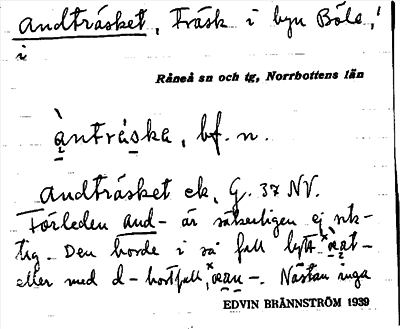 andträsket, träsk i byn Böle,
i
Råneå sn och tg, Norrbottens län
àntràska, bf. n.
andträsket ek, G. 37 NV.
Förleden and- är säkerligen ej rik-
tig. Den borde i så fall lytt
eller med d-bortfall, . Nästan inga
EDVIN BRÄNNSTRÖM 1939